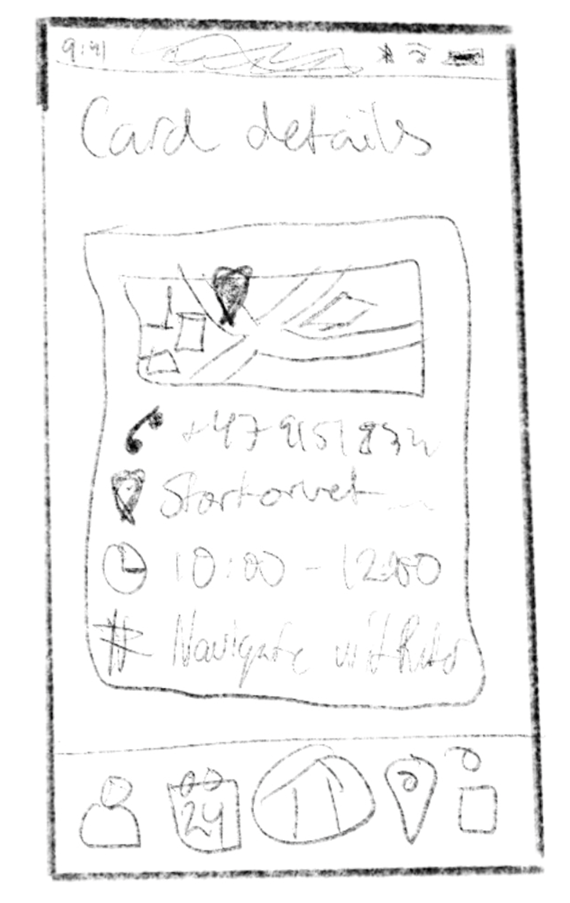 9:41
Card details
+47 9151832
Stortorvet
10:00 - 12:00
# Navigate with
24